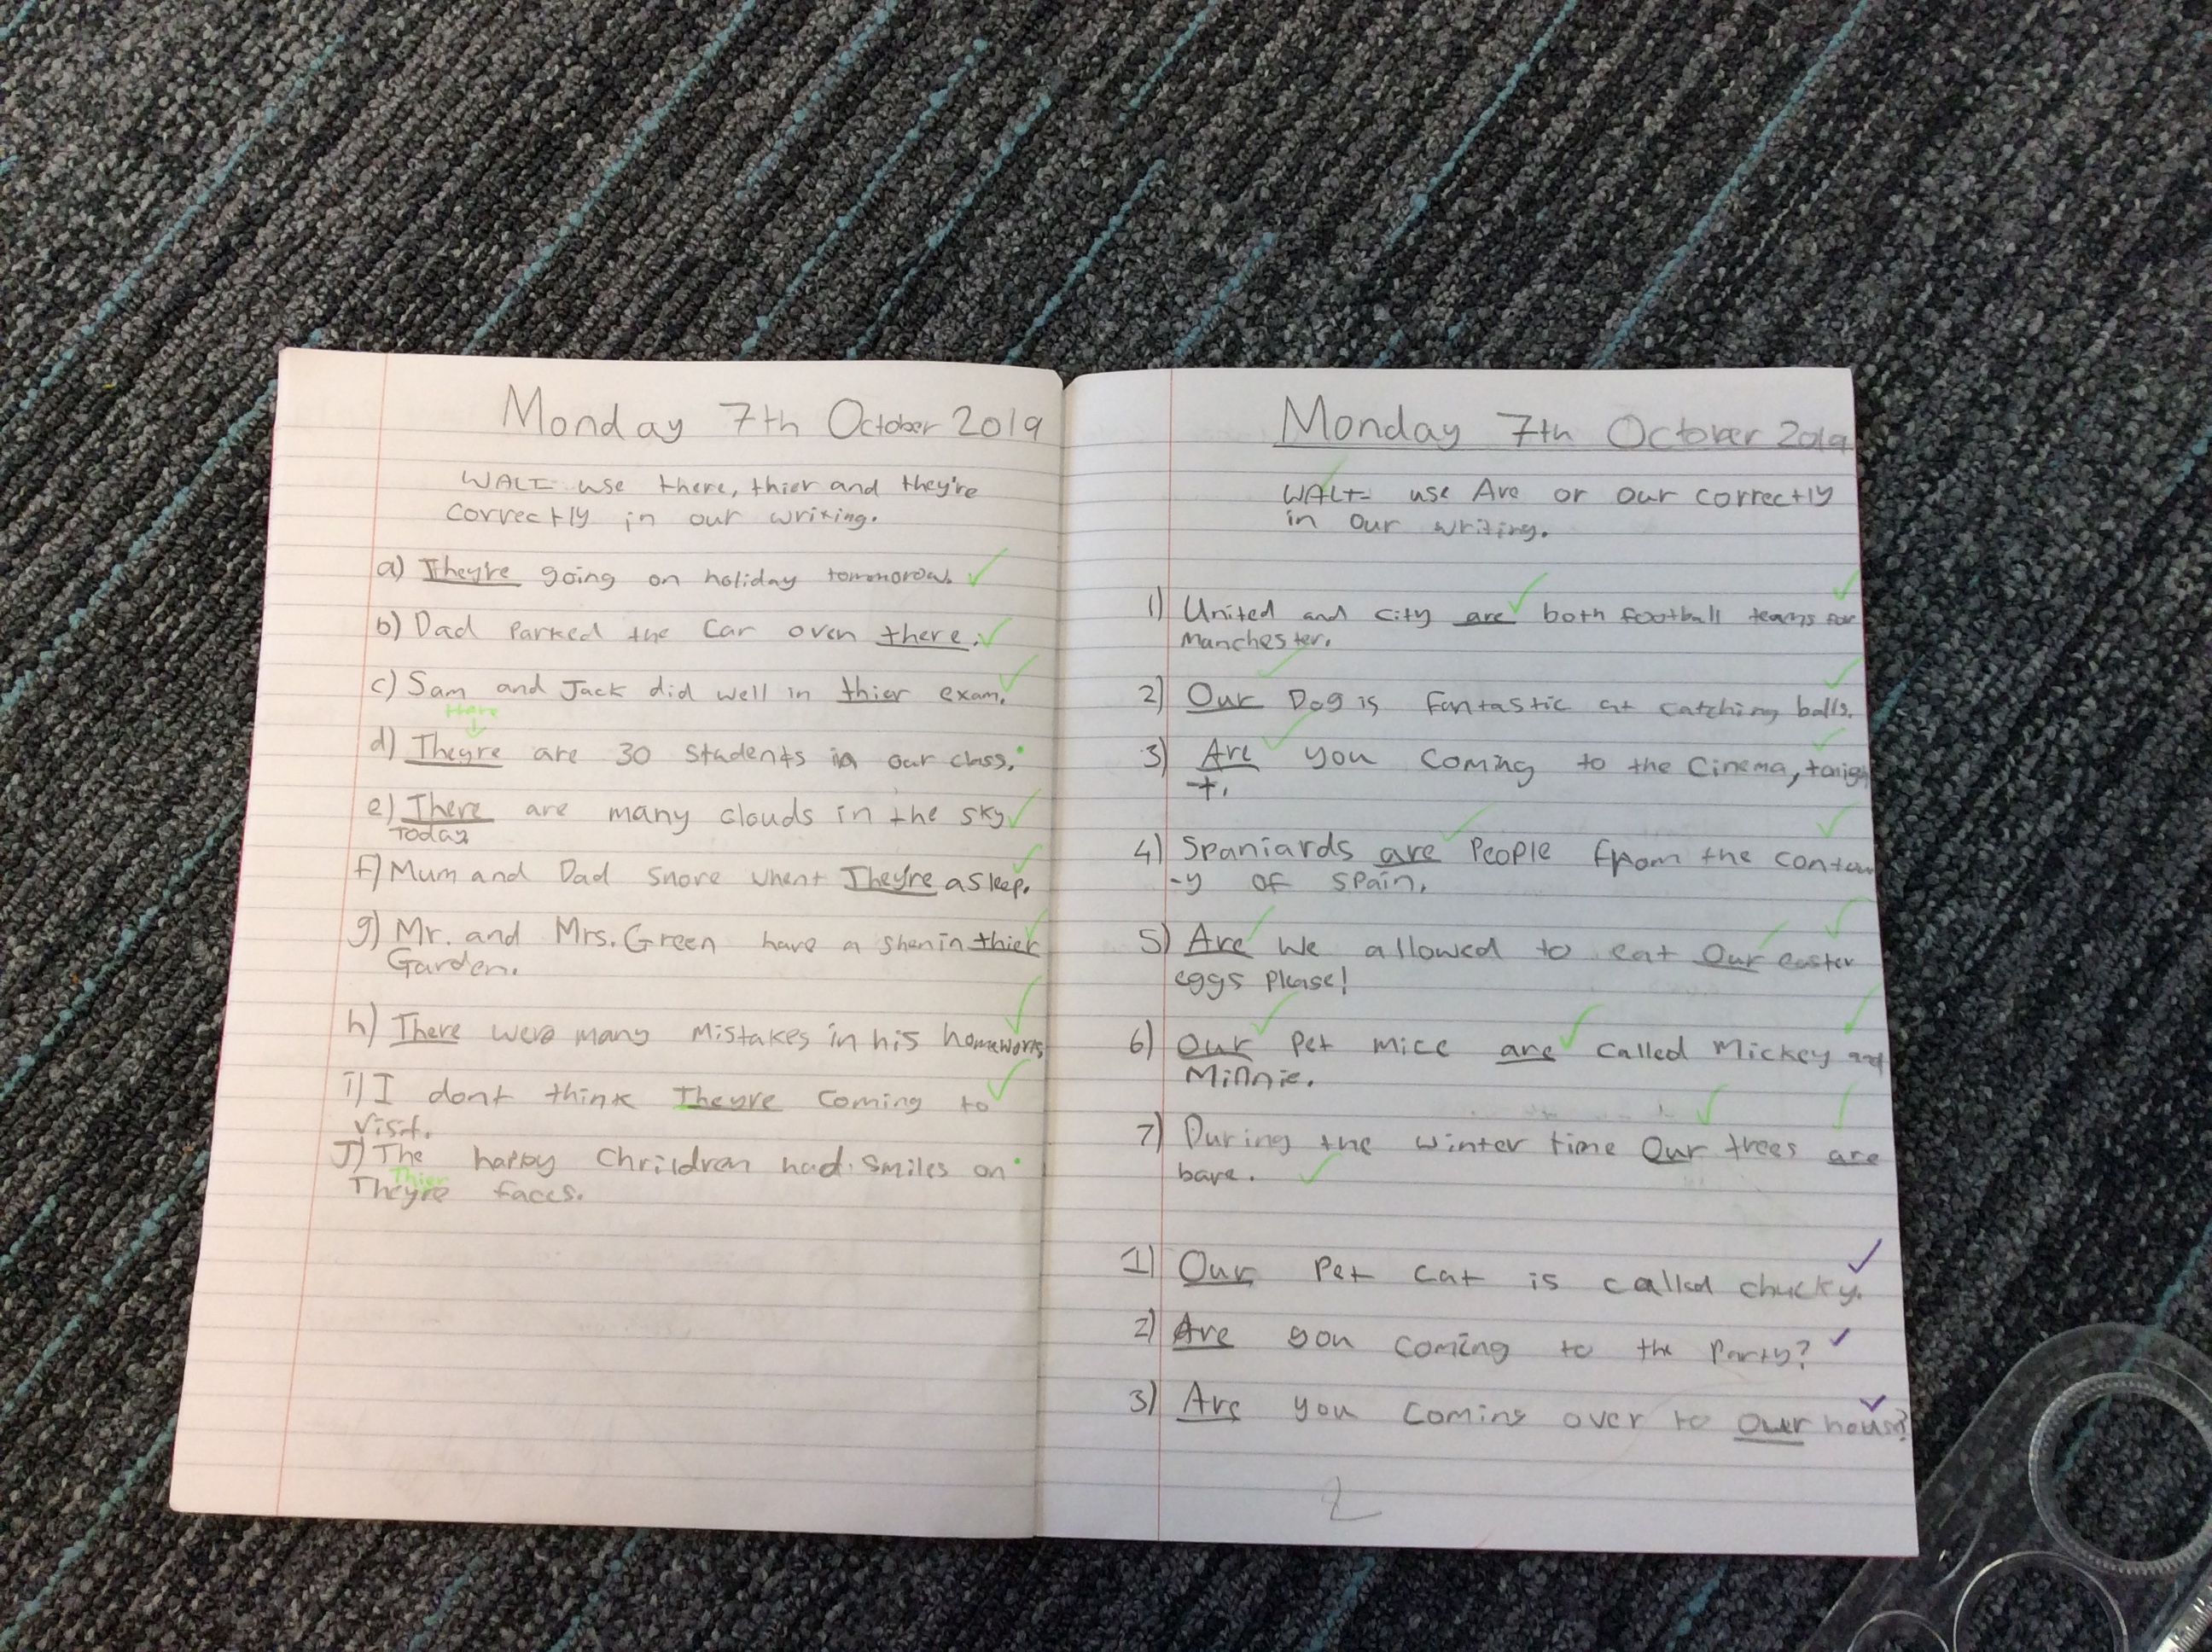 Monday 7th October 2019
WALT use there, thier and they're
correctly in our writing.
a) They're going on holiday tommorow.
b) Dad Parked the Car over there.
c) Sam and Jack did well in thier exam.
there
d) Theyre are 30 Students in our class.
e) There are many clouds in the sky
Today
f) Mum and Dad Snore Theyre asleep.
g) Mr. and Mrs. Green have a in thier
Garden.
h) There were many Mistakes in his homework
i) I dont think Theyre Coming to
Visit.
J) The happy Chrildren had Smiles on
Thier
Theyre faces.
Monday 7th October 2019
WALT use Are or our correctly
in our writing.
1) United and city are both football teams for
Manchester.
2) Our Dog is fantastic at catching balls.
3) Are you Coming to the Cinema, tonigh
t.
4) Spaniards are People from the
-y of Spain.
5) Are We allowed to eat Our easter
eggs Please!
6) Our Pet mice are called Mickey and
Minnie.
7) During the winter time Our trees are
bare.
1) Our Pet cat is called chucky.
2) Are you coming to the Party?
3) Are you coming over to Our house?
2